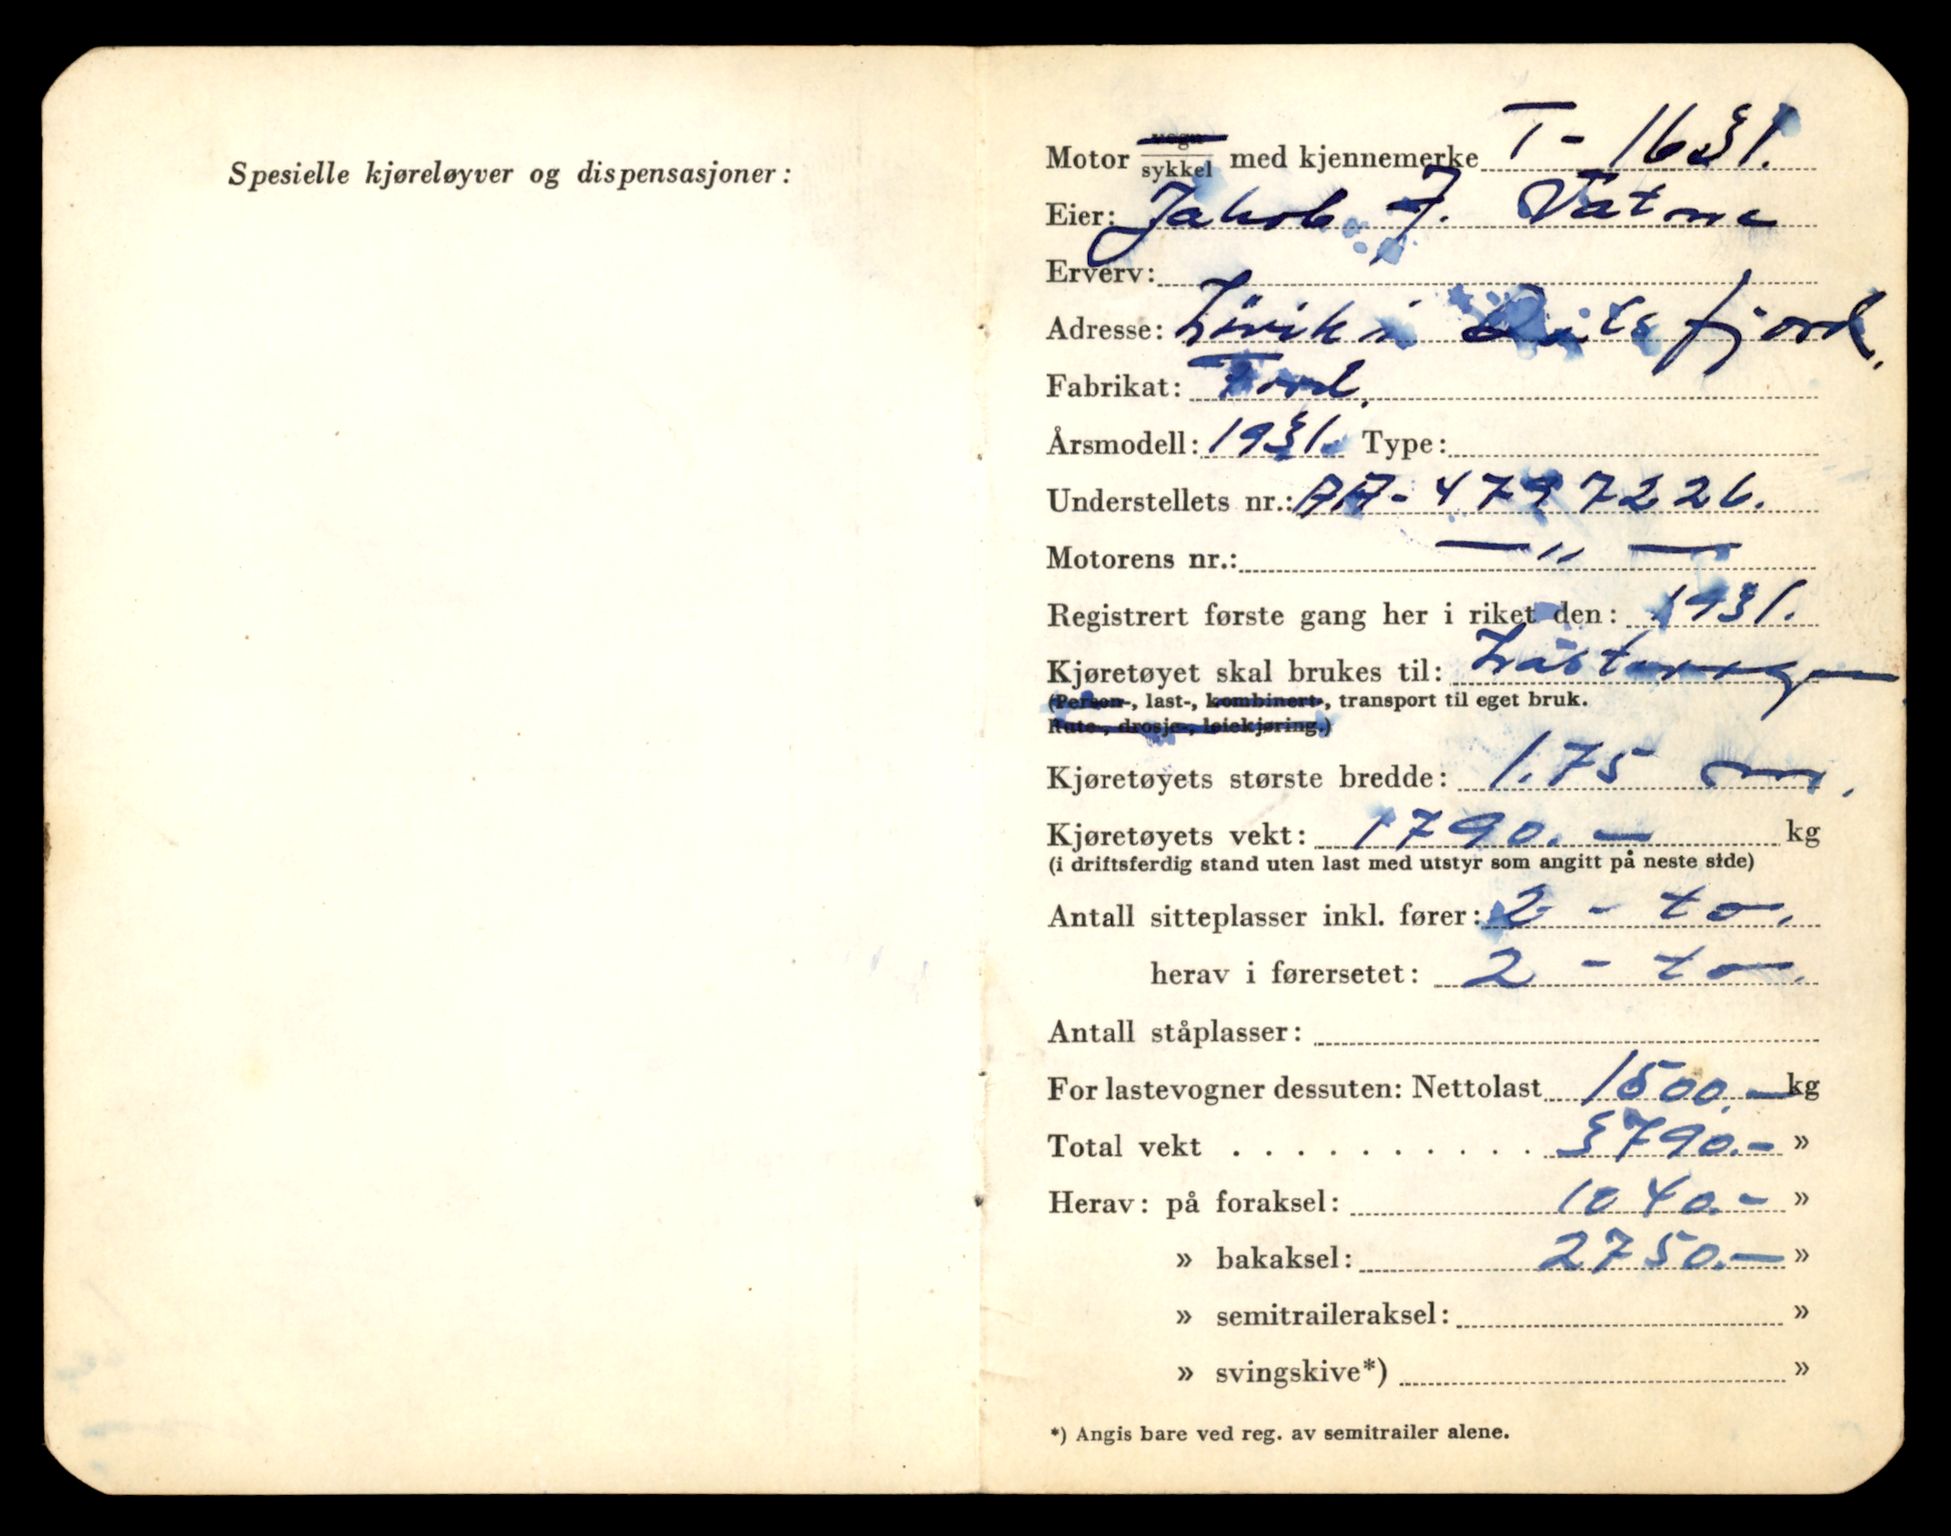 Spesielle kjøreløyver og dispensasjoner:
Motor vogn/sykkel med kjennemerke T- 1631.
Eier: Jakob J. Vatne
Erverv:
Adresse: Lövik i fjord.
Fabrikat: Ford.
Årsmodell: 1931. Type:
Understellets nr.: AA-4797226.
Motorens nr.: — " —
Registrert første gang her i riket den: 1931.
Kjøretøyet skal brukes til: Lastevogn
(Person-, last-, kombinert-, transport til eget bruk.
Rute-, drosje-, leiekjøring.)
Kjøretøyets største bredde: 1.75 m.
Kjøretøyets vekt: 1790.— kg
(i driftsferdig stand uten last med utstyr som angitt på neste side)
Antall sitteplasser inkl. fører: 2 - to.
herav i førersetet: 2 - to.
Antall ståplasser:
For lastevogner dessuten: Nettolast 1500.— kg
Total vekt . . . . . . . . . . . 3790.- »
Herav: på foraksel: 1040.- »
» bakaksel: 2750.— »
» semitraileraksel: »
» svingskive*) »
*) Angis bare ved reg. av semitrailer alene.